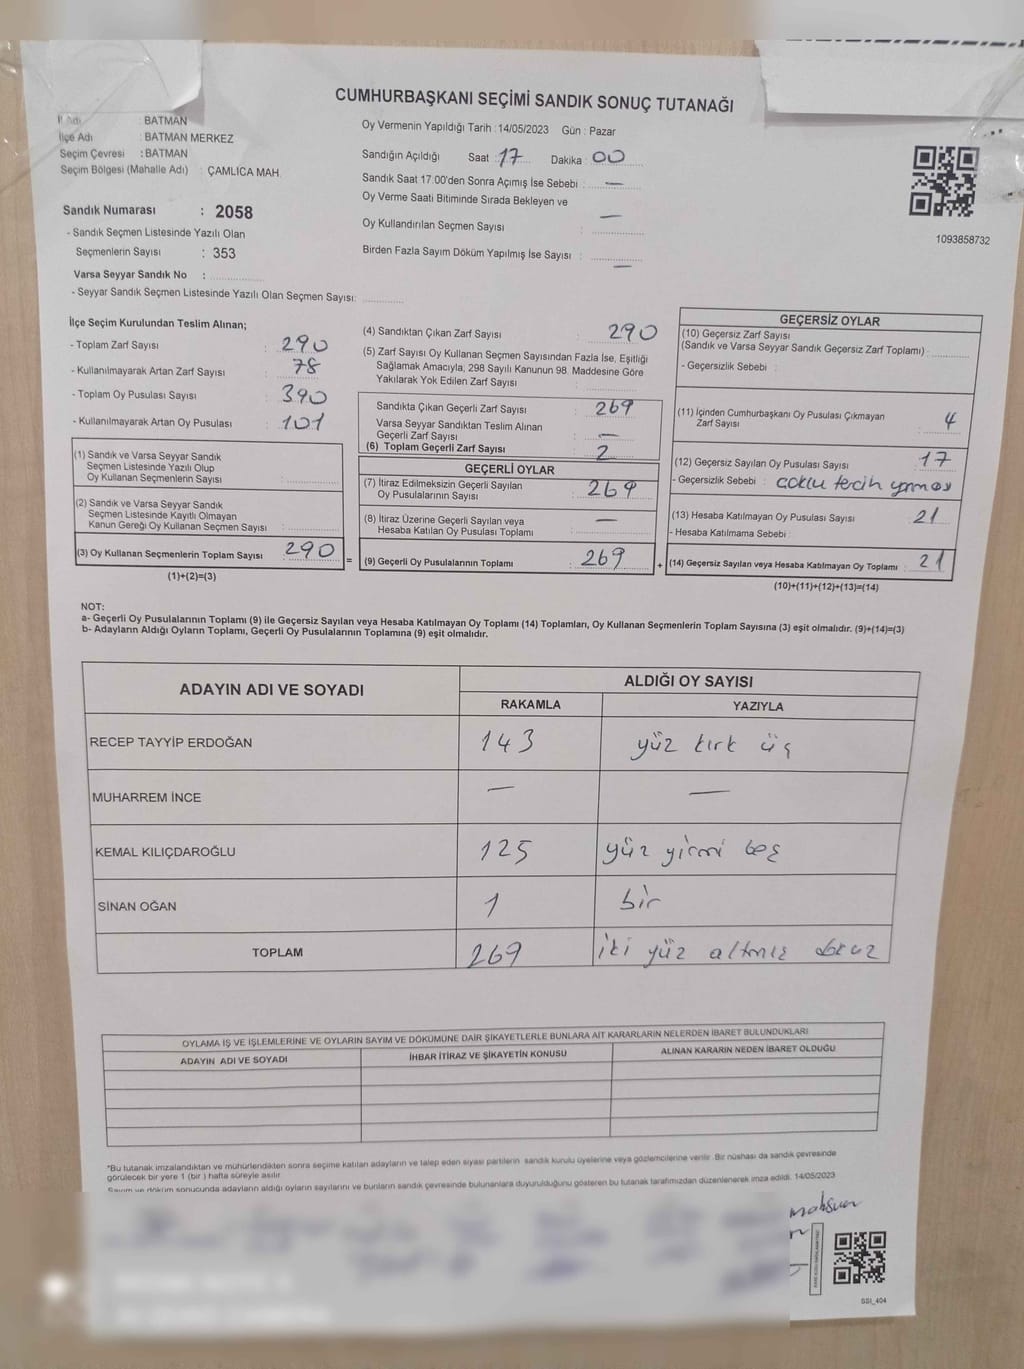 CUMHURBAŞKANI SEÇİMİ SANDIK SONUÇ TUTANAĞI
İl Adı : BATMAN
İlçe Adı : BATMAN MERKEZ
Seçim Çevresi : BATMAN
Seçim Bölgesi (Mahalle Adı) : ÇAMLICA MAH.
Sandık Numarası : 2058
- Sandık Seçmen Listesinde Yazılı Olan
Seçmenlerin Sayısı : 353
Varsa Seyyar Sandık No :
- Seyyar Sandık Seçmen Listesinde Yazılı Olan Seçmen Sayısı:
Oy Vermenin Yapıldığı Tarih : 14/05/2023 Gün : Pazar
Sandığın Açıldığı Saat : 17 Dakika : 00
Sandık Saat 17:00'den Sonra Açımış İse Sebebi : —
Oy Verme Saati Bitiminde Sırada Bekleyen ve
Oy Kullandırılan Seçmen Sayısı : —
Birden Fazla Sayım Döküm Yapılmış İse Sayısı : —
1093858732
İlçe Seçim Kurulundan Teslim Alınan;
- Toplam Zarf Sayısı : 290
- Kullanılmayarak Artan Zarf Sayısı : 78
- Toplam Oy Pusulası Sayısı : 390
- Kullanılmayarak Artan Oy Pusulası : 101
(1) Sandık ve Varsa Seyyar Sandık
Seçmen Listesinde Yazılı Olup
Oy Kullanan Seçmenlerin Sayısı :
(2) Sandık ve Varsa Seyyar Sandık
Seçmen Listesinde Kayıtlı Olmayan
Kanun Gereği Oy Kullanan Seçmen Sayısı :
(3) Oy Kullanan Seçmenlerin Toplam Sayısı : 290 =
(1)+(2)=(3)
(4) Sandıktan Çıkan Zarf Sayısı : 290
(5) Zarf Sayısı Oy Kullanan Seçmen Sayısından Fazla İse, Eşitliği
Sağlamak Amacıyla, 298 Sayılı Kanunun 98. Maddesine Göre
Yakılarak Yok Edilen Zarf Sayısı :
Sandıkta Çıkan Geçerli Zarf Sayısı : 269
Varsa Seyyar Sandıktan Teslim Alınan
Geçerli Zarf Sayısı : —
(6) Toplam Geçerli Zarf Sayısı : 2
GEÇERLİ OYLAR
(7) İtiraz Edilmeksizin Geçerli Sayılan
Oy Pusulalarının Sayısı : 269
(8) İtiraz Üzerine Geçerli Sayılan veya
Hesaba Katılan Oy Pusulası Toplamı : —
(9) Geçerli Oy Pusulalarının Toplamı : 269 +
GEÇERSİZ OYLAR
(10) Geçersiz Zarf Sayısı
(Sandık ve Varsa Seyyar Sandık Geçersiz Zarf Toplamı) :
- Geçersizlik Sebebi :
(11) İçinden Cumhurbaşkanı Oy Pusulası Çıkmayan
Zarf Sayısı : 4
(12) Geçersiz Sayılan Oy Pusulası Sayısı : 17
- Geçersizlik Sebebi : çoklu tercih
(13) Hesaba Katılmayan Oy Pusulası Sayısı : 21
- Hesaba Katılmama Sebebi :
(14) Geçersiz Sayılan veya Hesaba Katılmayan Oy Toplamı : 21
(10)+(11)+(12)+(13)=(14)
NOT:
a- Geçerli Oy Pusulalarının Toplamı (9) ile Geçersiz Sayılan veya Hesaba Katılmayan Oy Toplamı (14) Toplamları, Oy Kullanan Seçmenlerin Toplam Sayısına (3) eşit olmalıdır. (9)+(14)=(3)
b- Adayların Aldığı Oyların Toplamı, Geçerli Oy Pusulalarının Toplamına (9) eşit olmalıdır.
ADAYIN ADI VE SOYADI ALDIĞI OY SAYISI
RAKAMLA YAZIYLA
RECEP TAYYİP ERDOĞAN 143 yüz kırk üç
MUHARREM İNCE — —
KEMAL KILIÇDAROĞLU 125 yüz yirmi beş
SİNAN OĞAN 1 bir
TOPLAM 269 iki yüz altmış dokuz
OYLAMA İŞ VE İŞLEMLERİNE VE OYLARIN SAYIM VE DÖKÜMÜNE DAİR ŞİKAYETLERLE BUNLARA AİT KARARLARIN NELERDEN İBARET BULUNDUKLARI
ADAYIN ADI VE SOYADI İHBAR İTİRAZ VE ŞİKAYETİN KONUSU ALINAN KARARIN NEDEN İBARET OLDUĞU
*Bu tutanak imzalandıktan ve mühürlendikten sonra seçime katılan adayların ve talep eden siyasi partilerin sandık kurulu üyelerine veya gözlemcilerine verilir. Bir nüshası da sandık çevresinde
görülecek bir yere 1 (bir) hafta süreyle asılır.
Sayım ve döküm sonucunda adayların aldığı oyların sayılarını ve bunların sandık çevresinde bulunanlara duyurulduğunu gösteren bu tutanak tarafımızdan düzenlenerek imza edildi. 14/05/2023